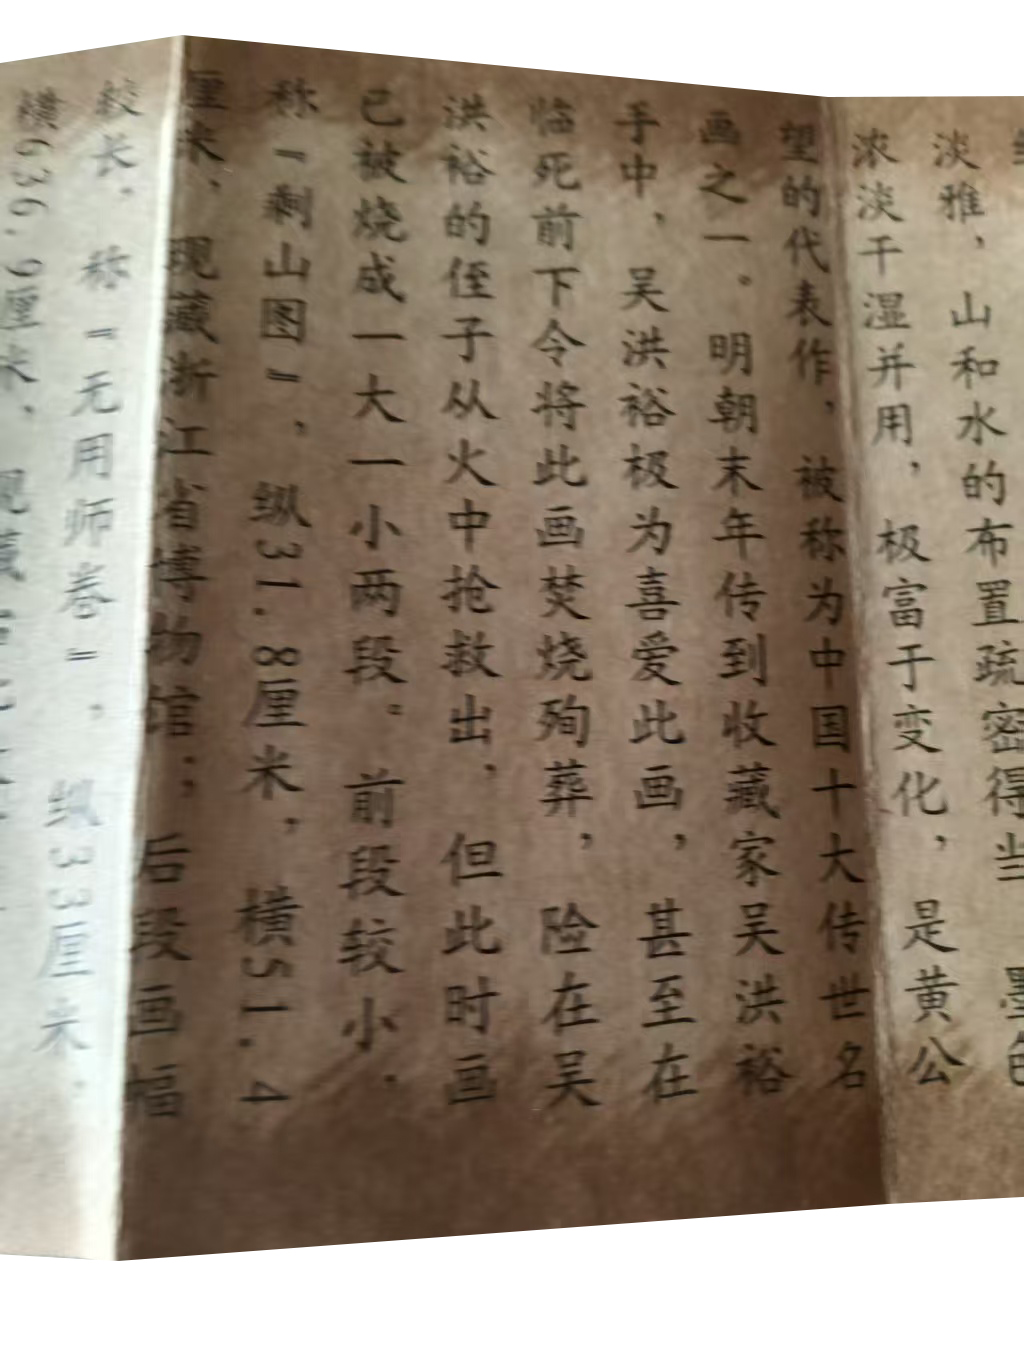 淡雅，山和水的布置疏密得当 墨色
浓淡干湿并用，极富于变化，是黄公
望的代表作，被称为中国十大传世名
画之一。明朝末年传到收藏家吴洪裕
手中，吴洪裕极为喜爱此画，甚至在
临死前下令将此画焚烧殉葬，险在吴
洪裕的侄子从火中抢救出，但此时画
已被烧成一大一小两段。前段较小，
称『剩山图』，纵31.8厘米，横51.4
厘米，现藏浙江省博物馆；后段画幅
较长，称『无用师卷』，纵33厘米，
横636.9厘米，现藏